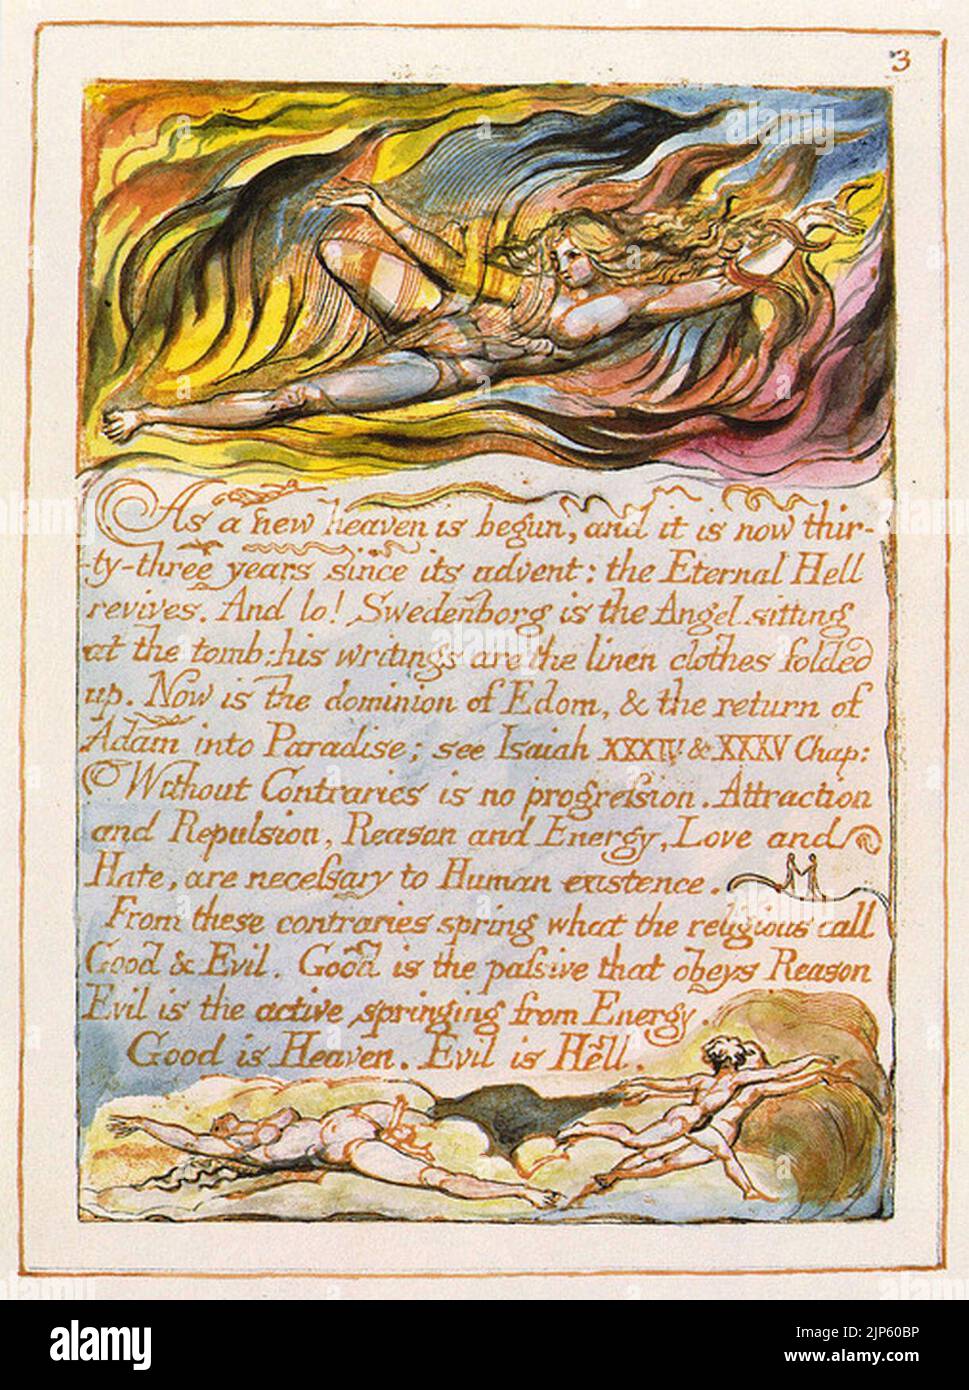 3
As a new heaven is begun, and it is now thir-
-ty-three years since its advent: the Eternal Hell
revives. And lo! Swedenborg is the Angel sitting
at the tomb: his writings are the linen clothes folded
up. Now is the dominion of Edom, & the return of
Adam into Paradise; see Isaiah XXXIV & XXXV Chap:
Without Contraries is no progreſsion. Attraction
and Repulsion, Reason and Energy, Love and
Hate, are neceſsary to Human existence.
From these contraries spring what the religious call
Good & Evil. Good is the paſsive that obeys Reason
Evil is the active springing from Energy.
Good is Heaven. Evil is Hell.
alamy
Image ID: 2JP60BP
www.alamy.com